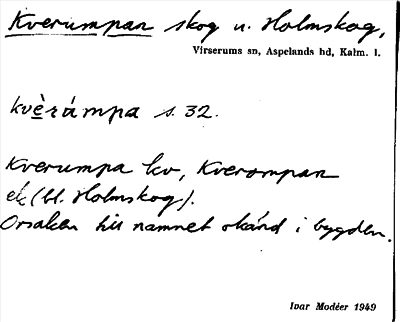 Kverumpan skog u. Holmskog,
Virserums sn, Aspelands hd, Kalm. l.
kvὲrámpa s. 32.
Kverumpa kv, Kverompan
ek (bl. Holmskog).
Orsaken till namnet okänd i bygden.
Ivar Modéer 1949